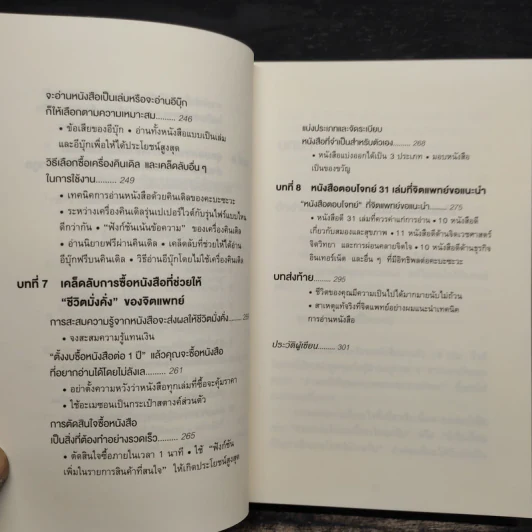 จะอ่านหนังสือเป็นเล่มหรือจะอ่านอีบุ๊ก
ก็ให้เลือกตามความเหมาะสม......... 246
• ข้อเสียของอีบุ๊ก • อ่านทั้งหนังสือแบบเป็นเล่ม
และอีบุ๊กเพื่อให้ได้ประโยชน์สูงสุด
วิธีเลือกซื้อเครื่องคินเดิล และเคล็ดลับอื่น ๆ
ในการใช้งาน......... 249
• เทคนิคการอ่านหนังสือด้วยคินเดิลของคะบะซะวะ
• ระหว่างเครื่องคินเดิลรุ่นเปเปอร์ไวต์กับรุ่นไฟร์แบบไหน
ดีกว่ากัน • “ฟังก์ชันเน้นข้อความ” ของเครื่องคินเดิล
• อ่านนิยายฟรีผ่านคินเดิล • เคล็ดลับที่ช่วยให้ได้อ่าน
อีบุ๊กฟรีบนคินเดิล • วิธีอ่านอีบุ๊กโดยไม่ใช้เครื่องคินเดิล
บทที่ 7 เคล็ดลับการซื้อหนังสือที่ช่วยให้
“ชีวิตมั่งคั่ง” ของจิตแพทย์
การสะสมความรู้จากหนังสือจะส่งผลให้ชีวิตมั่งคั่ง.........
• จงสะสมความรู้แทนเงิน
“ตั้งงบซื้อหนังสือต่อ 1 ปี” แล้วคุณจะซื้อหนังสือ
ที่อยากอ่านได้โดยไม่ลังเล......... 261
• อย่าตั้งความหวังว่าหนังสือทุกเล่มที่ซื้อจะคุ้มราคา
• ใช้อะเมซอนเป็นกระเป๋าสตางค์ส่วนตัว
การตัดสินใจซื้อหนังสือ
เป็นสิ่งที่ต้องทำอย่างรวดเร็ว......... 265
• ตัดสินใจซื้อภายในเวลา 1 นาที • ใช้ “ฟังก์ชัน
เพิ่มในรายการสินค้าที่สนใจ” ให้เกิดประโยชน์สูงสุด
แบ่งประเภทและจัดระเบียบ
หนังสือที่จำเป็นสำหรับตัวเอง......... 268
• หนังสือแบ่งออกได้เป็น 3 ประเภท • มอบหนังสือ
เป็นของขวัญ
บทที่ 8 หนังสือตอบโจทย์ 31 เล่มที่จิตแพทย์ขอแนะนำ
“หนังสือตอบโจทย์” ที่จิตแพทย์ขอแนะนำ......... 275
• หนังสือดี 31 เล่มที่ควรค่าแก่การอ่าน • 10 หนังสือดี
เกี่ยวกับสมองและสุขภาพ • 11 หนังสือดีด้านจิตเวชศาสตร์
จิตวิทยา และการผ่อนคลายจิตใจ • 10 หนังสือดีด้านธุรกิจ
อินเทอร์เน็ต และอื่น ๆ ที่มีอิทธิพลต่อคะบะซะวะ
บทส่งท้าย......... 295
• ชีวิตของคุณมีความเป็นไปได้มากมายนับไม่ถ้วน
• สาเหตุแท้จริงที่จิตแพทย์อย่างผมแนะนำเทคนิค
การอ่านหนังสือ
ประวัติผู้เขียน......... 301